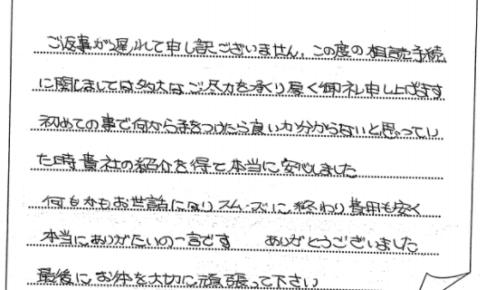 ご返事が遅れて申し訳ございません。この度の相続手続
に関しましては多大なご尽力を承り厚く御礼申し上げます
初めての事で何から手をつけたら良いか分からないと思ってい
た時貴社の紹介を得て本当に安心しました
何もかもお世話になりスムーズに終わり費用も安く
本当にありがたいの一言です ありがとうございました
最後にお体を大切に頑張って下さい